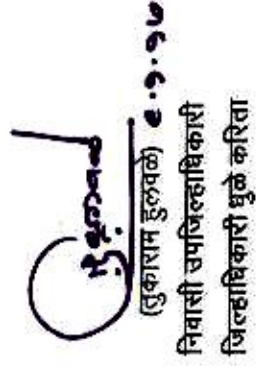 ९.१.१७
(तुकाराम हुलवळे)
निवासी उपजिल्हाधिकारी
जिल्हाधिकारी धुळे करिता